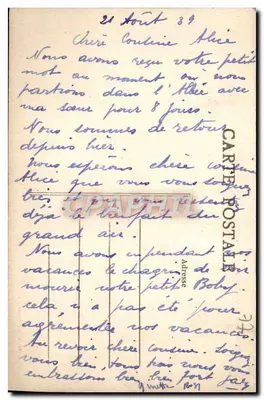 21 Août 39
Chère Cousine Alice
Nous avons reçu votre petit
mot au moment où nous
partions dans l'Allée avec
ma sœur pour 8 jours.
Nous sommes de retour
depuis hier.
Nous espérons chère cousine
Alice que vous vous soignez
bien
déjà
grand air.
Nous avons cependant nos
vacances le chagrin de voir
mourir notre petit Boby
cela n'a pas été pour
agrémenter nos vacances
Au revoir chère cousine. Soignez
vous bien tous nous vous
embrassons bien fort
CARTE POSTALE
Adresse